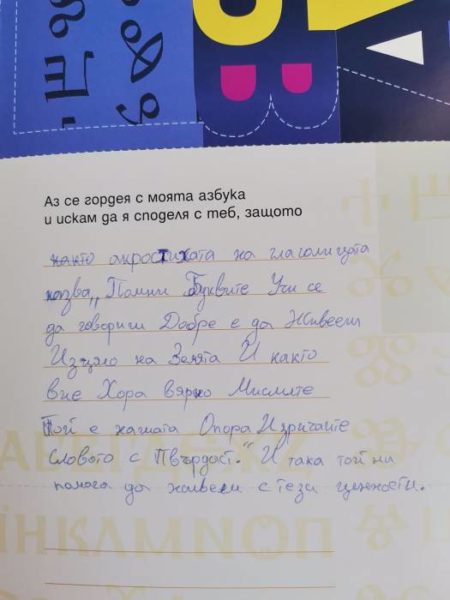 В
Аз се гордея с моята азбука
и искам да я споделя с теб, защото
както акростихата на глаголицата
казва „Помни Буквите Учи се
да говориш Добре е да Живееш
Изцяло на Земята И както
вие Хора вярно Мислите
Той е нашата Опора Изричайте
словото с Твърдост." И така той ни
помага да живеем с тези ценности.